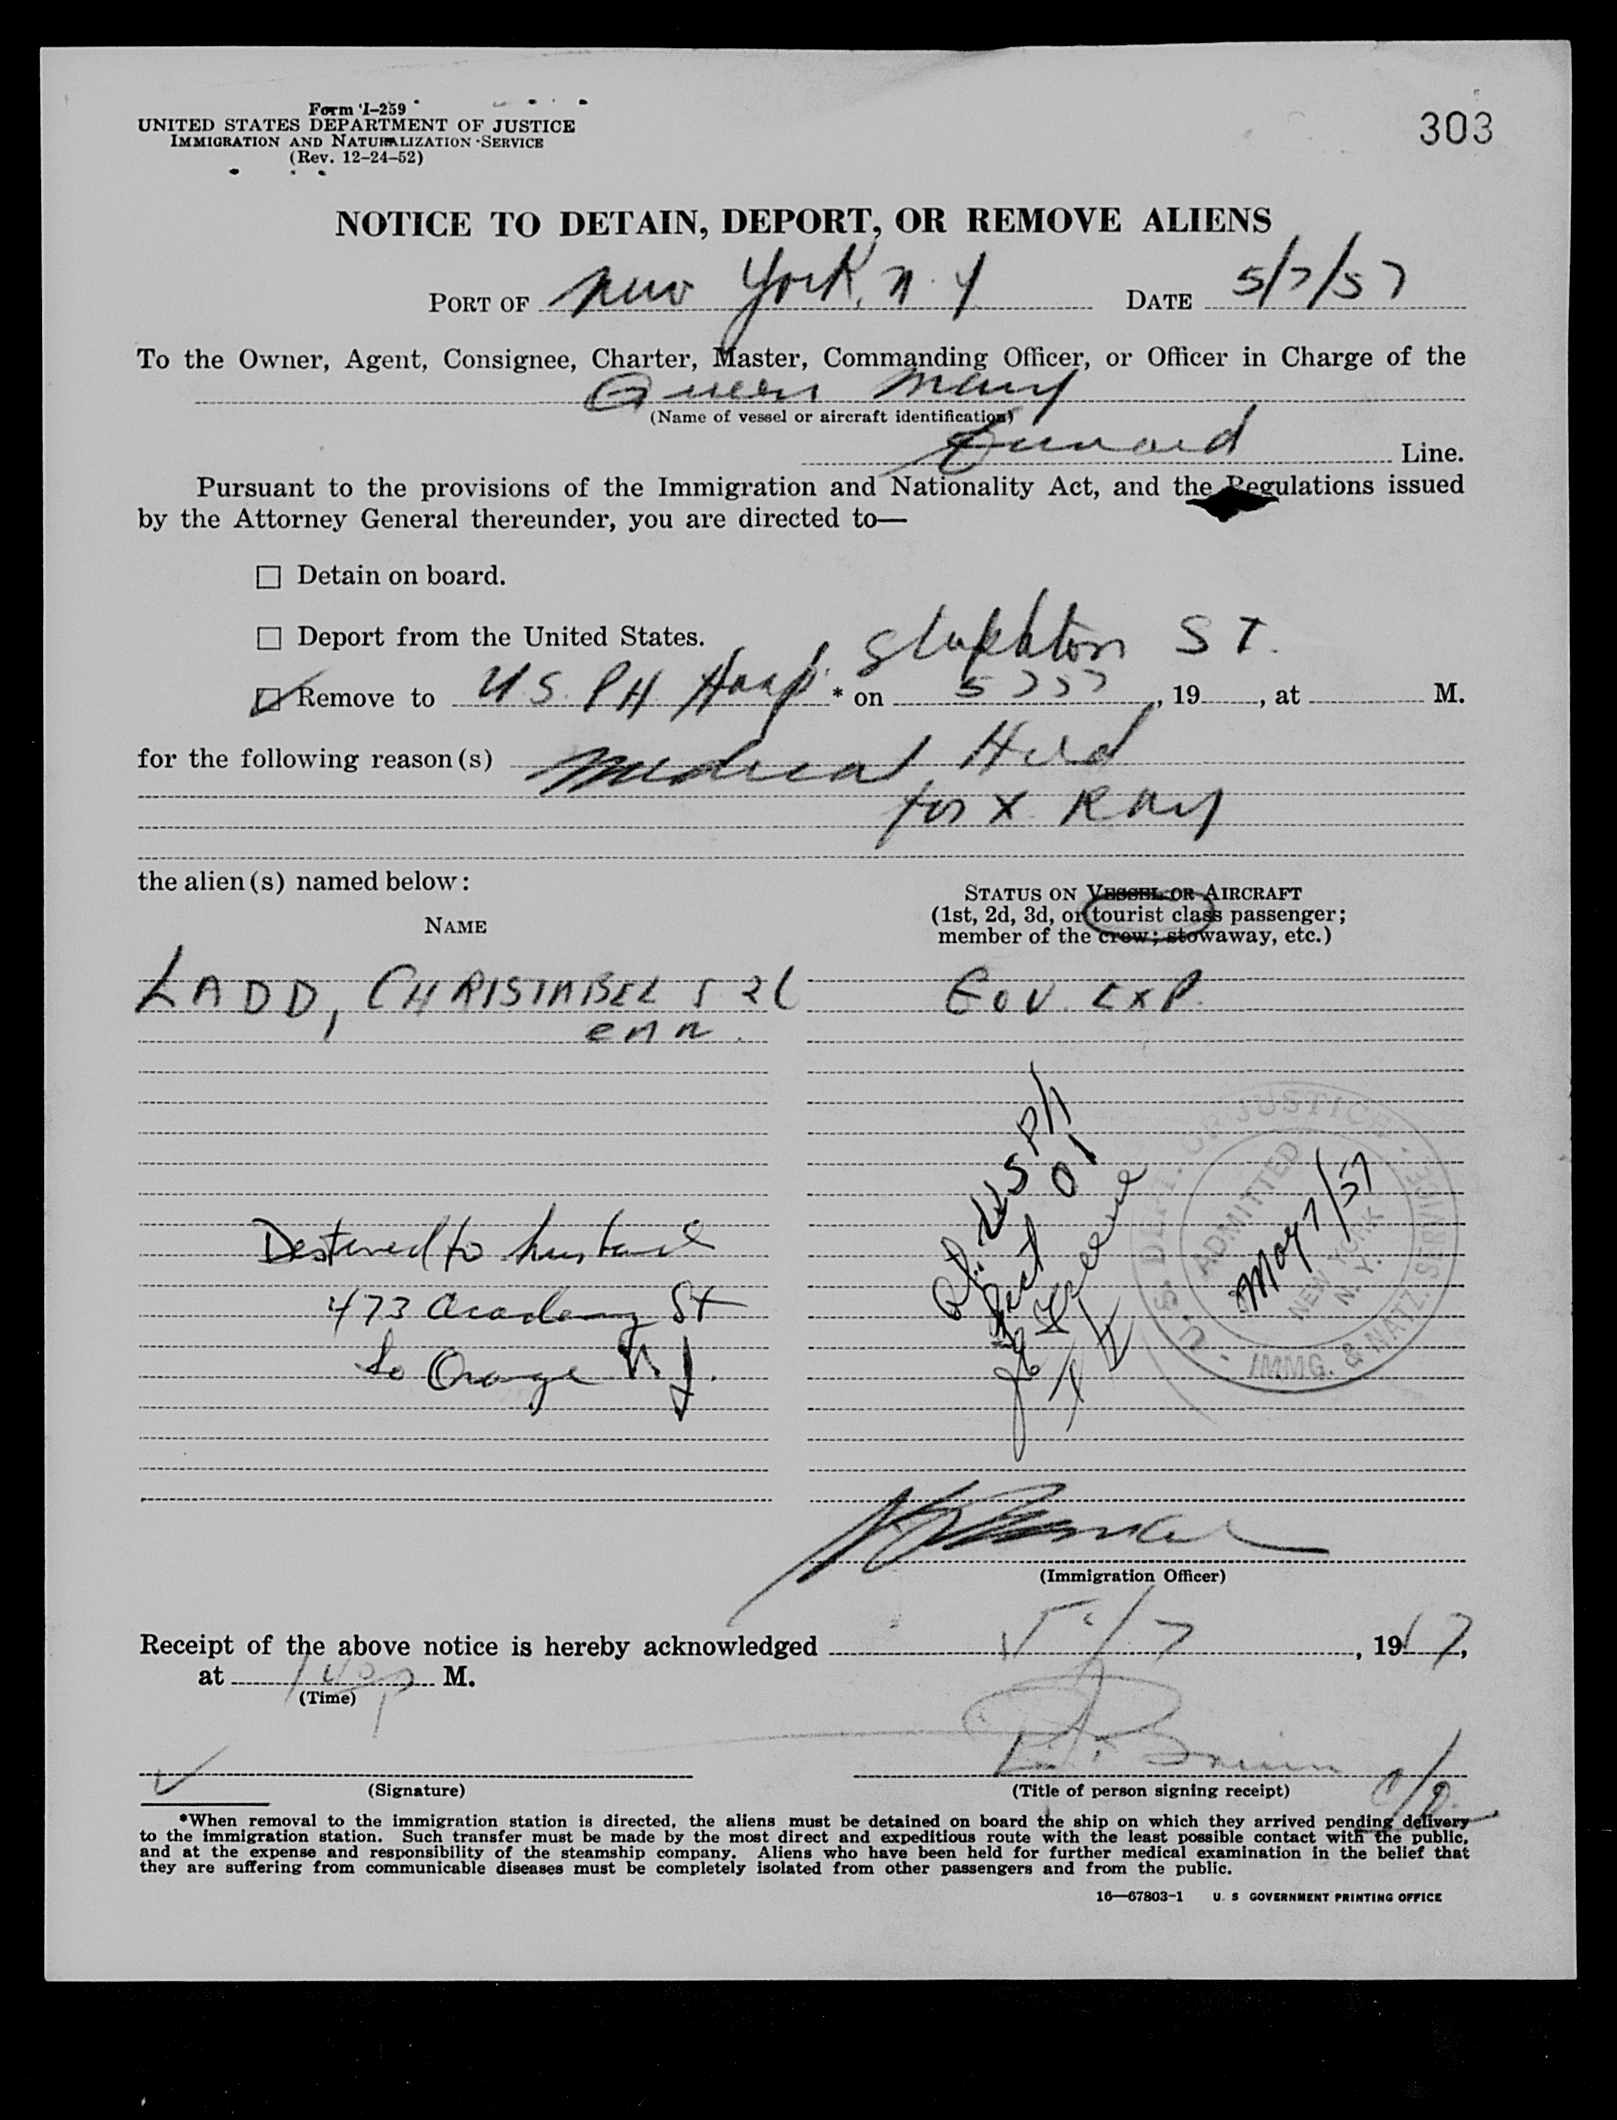 Form I-259
UNITED STATES DEPARTMENT OF JUSTICE
IMMIGRATION AND NATURALIZATION SERVICE
(Rev. 12-24-52)
303
NOTICE TO DETAIN, DEPORT, OR REMOVE ALIENS
PORT OF New York, N.Y. DATE 5/7/57
To the Owner, Agent, Consignee, Charter, Master, Commanding Officer, or Officer in Charge of the
Queen Mary
(Name of vessel or aircraft identification)
Cunard Line.
Pursuant to the provisions of the Immigration and Nationality Act, and the Regulations issued
by the Attorney General thereunder, you are directed to—
☐ Detain on board.
☐ Deport from the United States.
Stapleton ST.
☑ Remove to U.S. P.H. Hosp. * on 5 7 57, 19, at M.
for the following reason(s) Medical Held
for X Ray
the alien(s) named below:
NAME
STATUS ON VESSEL OR AIRCRAFT
(1st, 2d, 3d, or tourist class passenger;
member of the crew; stowaway, etc.)
LADD, CHRISTABEL
GOV. EXP.
Destined to husband
473 Academy St
So Orange N.J.
USPH
U.S. DEPT. OF JUSTICE
ADMITTED
May 7/57
NEW YORK
N.Y.
IMMG. & NATZ. SERVICE
(Immigration Officer)
Receipt of the above notice is hereby acknowledged 5/7, 19
at M.
(Time)
(Signature)
(Title of person signing receipt)
*When removal to the immigration station is directed, the aliens must be detained on board the ship on which they arrived pending delivery
to the immigration station. Such transfer must be made by the most direct and expeditious route with the least possible contact with the public,
and at the expense and responsibility of the steamship company. Aliens who have been held for further medical examination in the belief that
they are suffering from communicable diseases must be completely isolated from other passengers and from the public.
16—67803-1 U. S GOVERNMENT PRINTING OFFICE